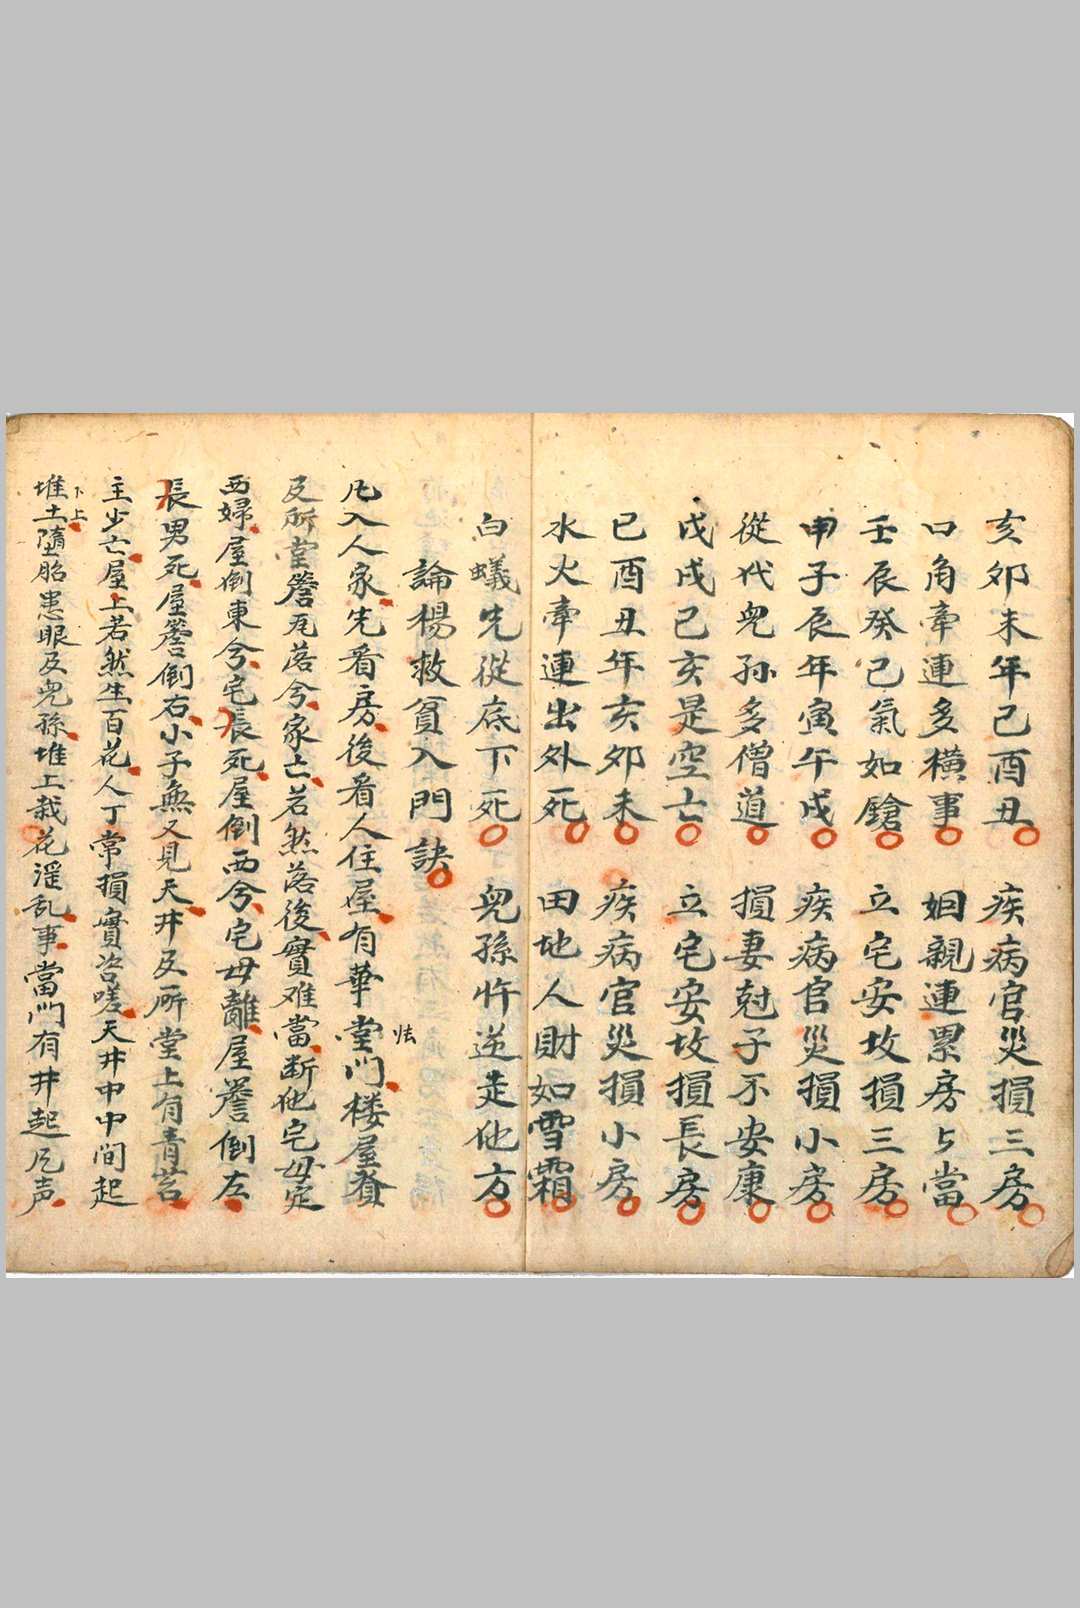 亥卯未年己酉丑　疾病官災損三房
口角牽連多橫事　姻親連累房与當
壬辰癸己氣如鎗　立宅安坟損三房
申子辰年寅午戌　疾病官災損小房
從代児孙多僧道　損妻尅子不安康
戊戌己亥是空亡　立宅安坟損長房
巳酉丑年亥卯未　疾病官災損小房
水火牽連出外死　田地人財如雪霜
白蟻先從底下死　児孫忤逆走他方
論楊救貧入門訣
凡入人家先看房後看人住屋有華堂門楼屋脊
怯
及所堂簷瓦落兮家亡若然落後實难當断他宅母定
西婦屋倒東兮宅長死屋倒西兮宅母離屋簷倒左
長男死屋簷倒右小子無又見天井及所堂上有青苔
主少亡屋上若然生百花人丁常損實咨嗟天井中中间起
下上
堆土墮胎患眼及児孫堆上栽花淫乱事當门有井起凡声